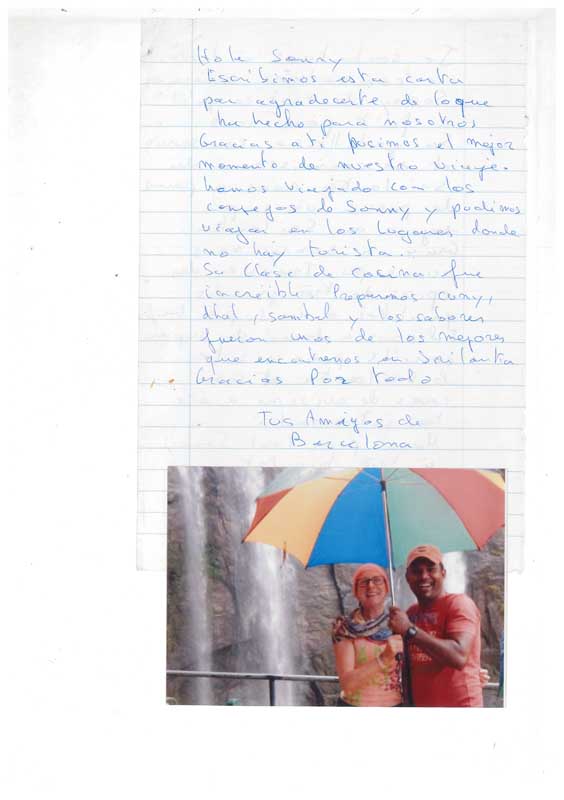 Hola Sonny
Escribimos esta carta
por agradecerte de lo que
ha hecho para nosotros
Gracias a ti pusimos el mejor
momento de nuestro viaje.
hemos viajado con los
consejos de Sonny y pudimos
viajar en los lugares donde
no hay turista.
Su clase de cosina fue
increible Preparmos curry,
dhal, sambal y los sabores
fueron unos de los mejores
que encontremos en Srilanka
Gracias Por todo
Tus Amigos de
Barcelona